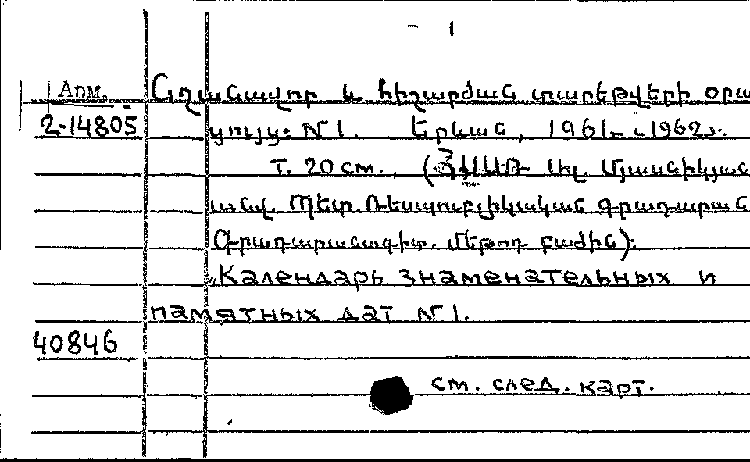 - 1
Арм. Նշանավոր և հիշարժան տարեթվերի օրա
2-14805 ցույց: N 1. Երևան, 1961- -1962թ.
т. 20 см. (ՀՍՍՌ Ալ. Մյասնիկյան
անվ. Պետ. Ռեսպուբլիկական գրադարան
Գրադարանագիտ. մեթոդ բաժին):
"Календарь знаменательных и
памятных дат N 1.
40846
см. след. карт.